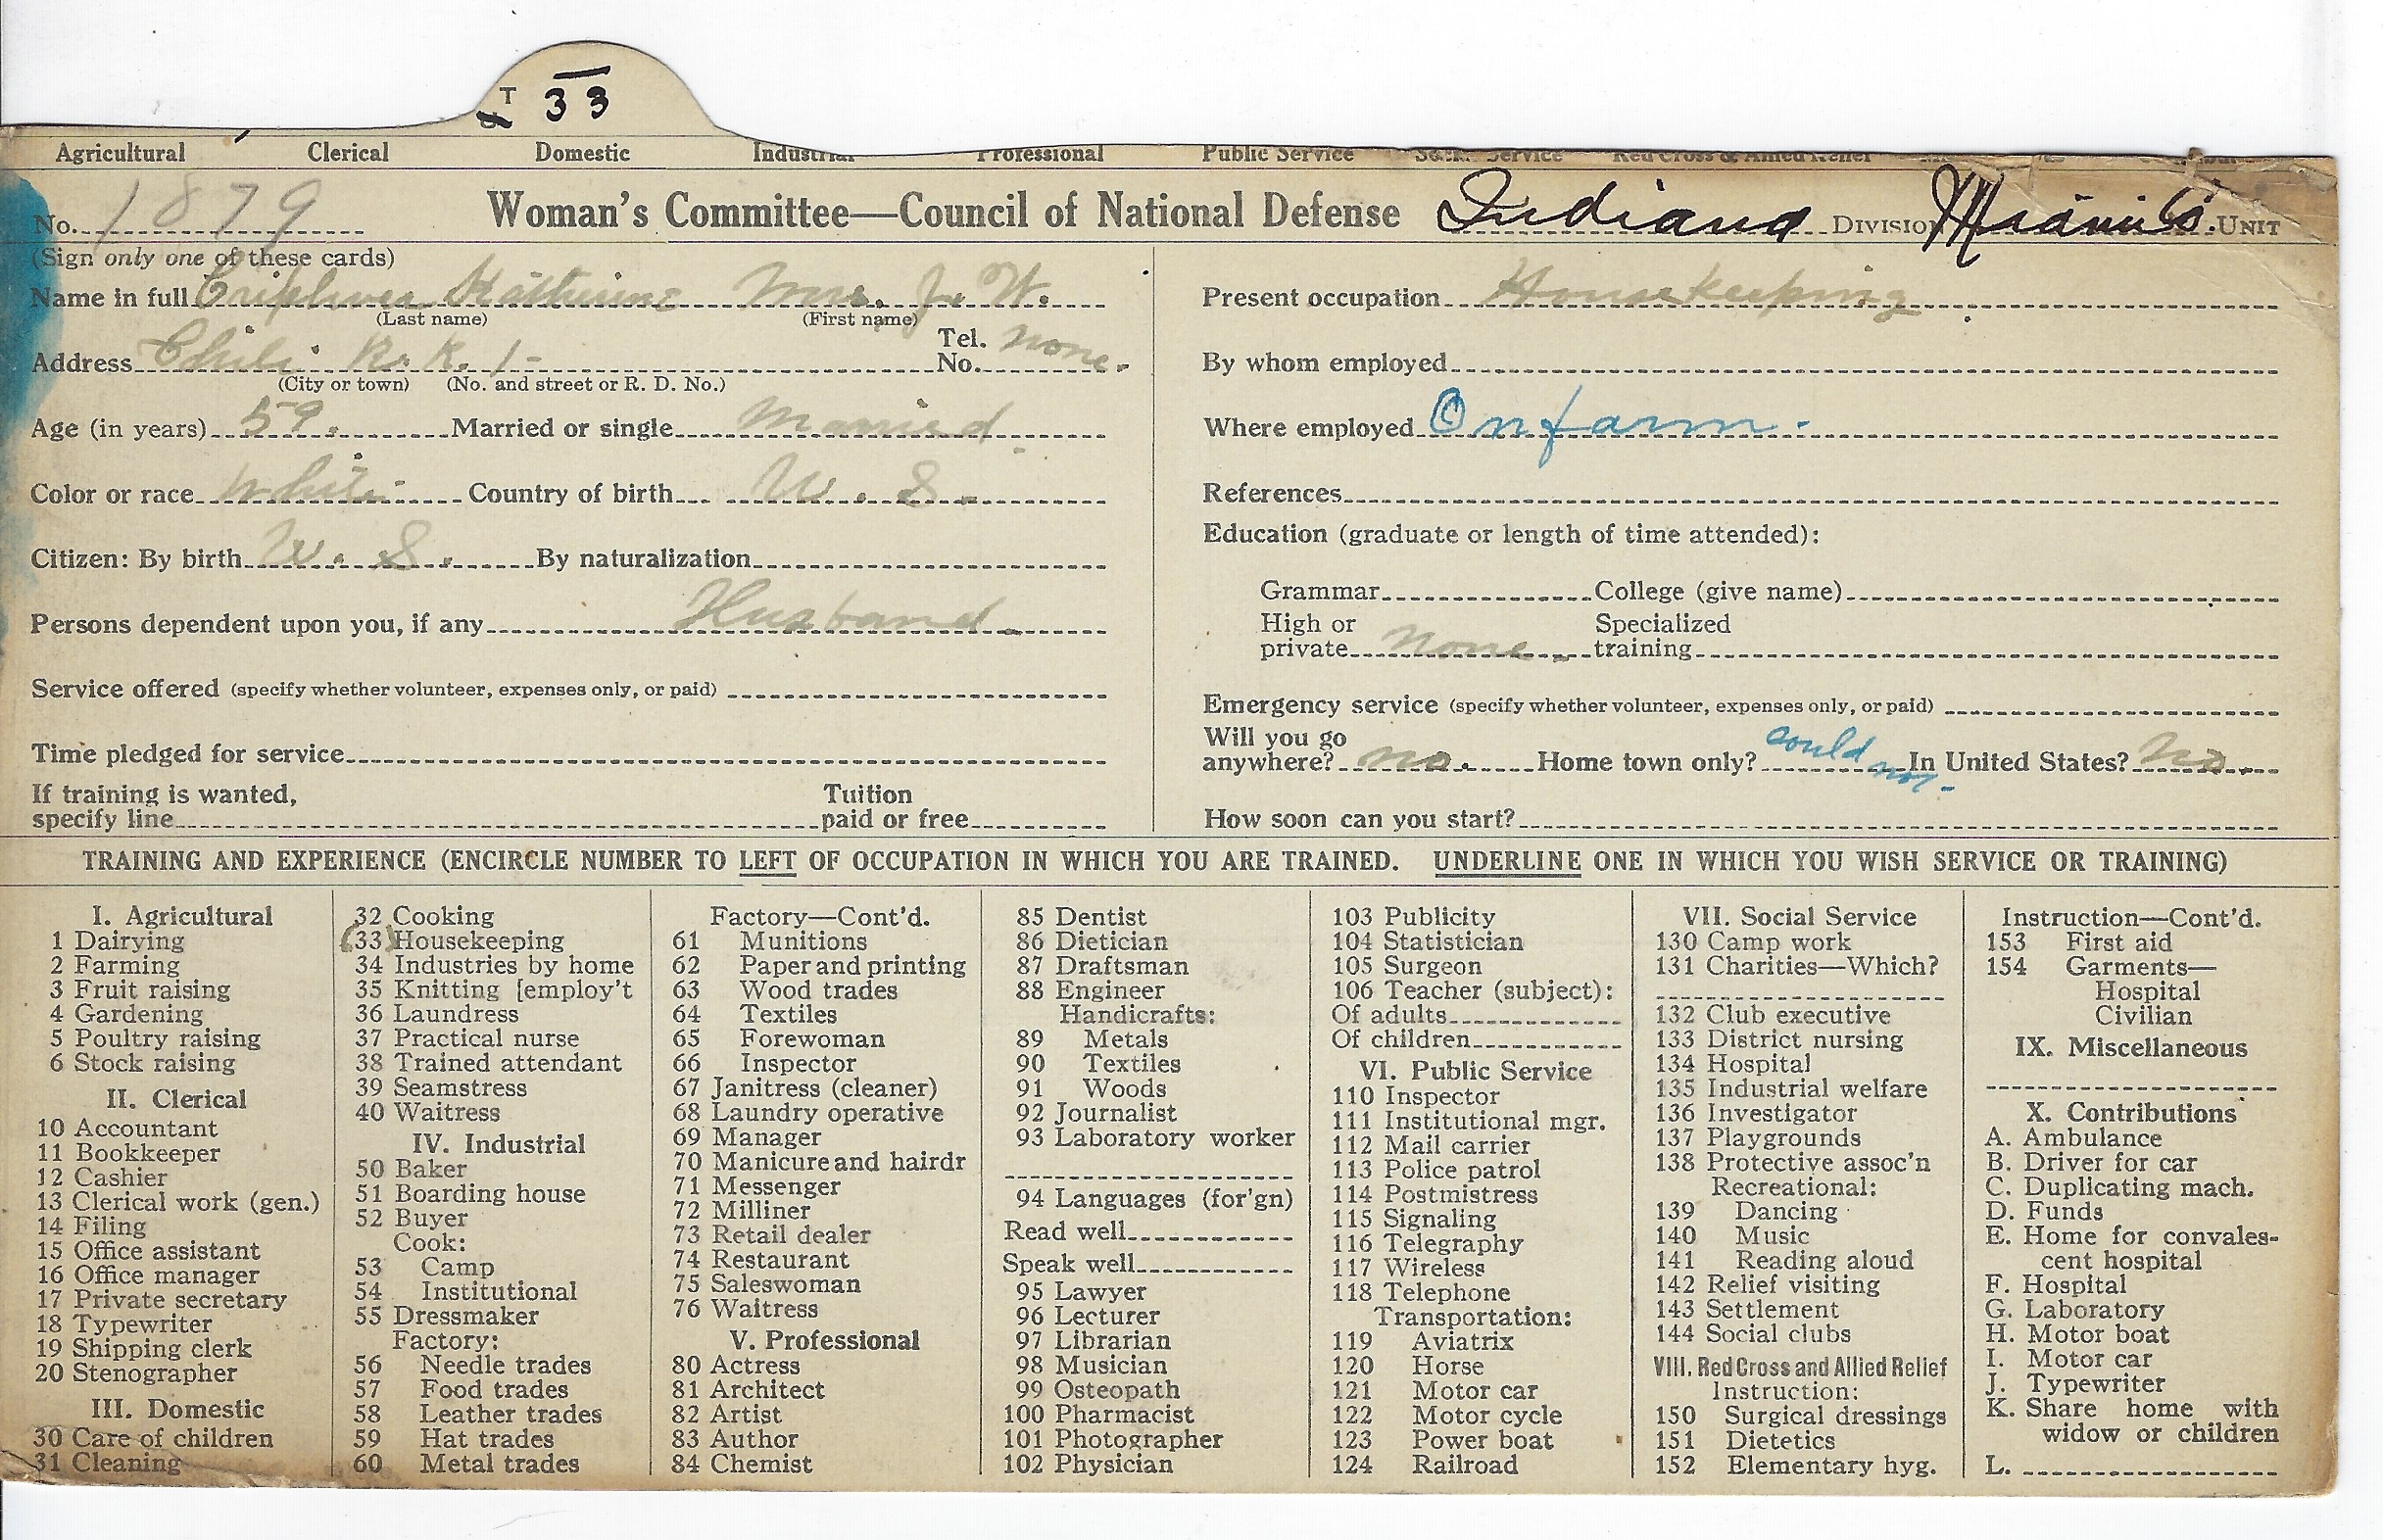 T 33
Agricultural Clerical Domestic Industrial Professional Public Service Social Service Red Cross & Allied Relief
No. 1879 Woman's Committee—Council of National Defense Indiana DIVISION Miami UNIT
(Sign only one of these cards)
Name in full Mrs. J. W.
(Last name) (First name)
Address Chili R. R. 1- Tel. No. none.
(City or town) (No. and street or R. D. No.)
Age (in years) 59. Married or single Married
Color or race White Country of birth U. S.
Citizen: By birth U. S. By naturalization
Persons dependent upon you, if any Husband
Service offered (specify whether volunteer, expenses only, or paid)
Time pledged for service
If training is wanted, specify line Tuition paid or free
Present occupation Housekeeping
By whom employed
Where employed On farm.
References
Education (graduate or length of time attended):
Grammar College (give name)
High or private none Specialized training
Emergency service (specify whether volunteer, expenses only, or paid)
Will you go anywhere? no. Home town only? could not- In United States? No
How soon can you start?
TRAINING AND EXPERIENCE (ENCIRCLE NUMBER TO LEFT OF OCCUPATION IN WHICH YOU ARE TRAINED. UNDERLINE ONE IN WHICH YOU WISH SERVICE OR TRAINING)
I. Agricultural
1 Dairying
2 Farming
3 Fruit raising
4 Gardening
5 Poultry raising
6 Stock raising
II. Clerical
10 Accountant
11 Bookkeeper
12 Cashier
13 Clerical work (gen.)
14 Filing
15 Office assistant
16 Office manager
17 Private secretary
18 Typewriter
19 Shipping clerk
20 Stenographer
III. Domestic
30 Care of children
31 Cleaning
32 Cooking
33 Housekeeping
34 Industries by home
35 Knitting [employ't
36 Laundress
37 Practical nurse
38 Trained attendant
39 Seamstress
40 Waitress
IV. Industrial
50 Baker
51 Boarding house
52 Buyer
Cook:
53 Camp
54 Institutional
55 Dressmaker
Factory:
56 Needle trades
57 Food trades
58 Leather trades
59 Hat trades
60 Metal trades
Factory—Cont'd.
61 Munitions
62 Paper and printing
63 Wood trades
64 Textiles
65 Forewoman
66 Inspector
67 Janitress (cleaner)
68 Laundry operative
69 Manager
70 Manicure and hairdr
71 Messenger
72 Milliner
73 Retail dealer
74 Restaurant
75 Saleswoman
76 Waitress
V. Professional
80 Actress
81 Architect
82 Artist
83 Author
84 Chemist
85 Dentist
86 Dietician
87 Draftsman
88 Engineer
Handicrafts:
89 Metals
90 Textiles
91 Woods
92 Journalist
93 Laboratory worker
94 Languages (for'gn)
Read well
Speak well
95 Lawyer
96 Lecturer
97 Librarian
98 Musician
99 Osteopath
100 Pharmacist
101 Photographer
102 Physician
103 Publicity
104 Statistician
105 Surgeon
106 Teacher (subject):
Of adults
Of children
VI. Public Service
110 Inspector
111 Institutional mgr.
112 Mail carrier
113 Police patrol
114 Postmistress
115 Signaling
116 Telegraphy
117 Wireless
118 Telephone
Transportation:
119 Aviatrix
120 Horse
121 Motor car
122 Motor cycle
123 Power boat
124 Railroad
VII. Social Service
130 Camp work
131 Charities—Which?
132 Club executive
133 District nursing
134 Hospital
135 Industrial welfare
136 Investigator
137 Playgrounds
138 Protective assoc'n
Recreational:
139 Dancing
140 Music
141 Reading aloud
142 Relief visiting
143 Settlement
144 Social clubs
VIII. Red Cross and Allied Relief
Instruction:
150 Surgical dressings
151 Dietetics
152 Elementary hyg.
Instruction—Cont'd.
153 First aid
154 Garments—
Hospital
Civilian
IX. Miscellaneous
X. Contributions
A. Ambulance
B. Driver for car
C. Duplicating mach.
D. Funds
E. Home for convales-
cent hospital
F. Hospital
G. Laboratory
H. Motor boat
I. Motor car
J. Typewriter
K. Share home with
widow or children
L.